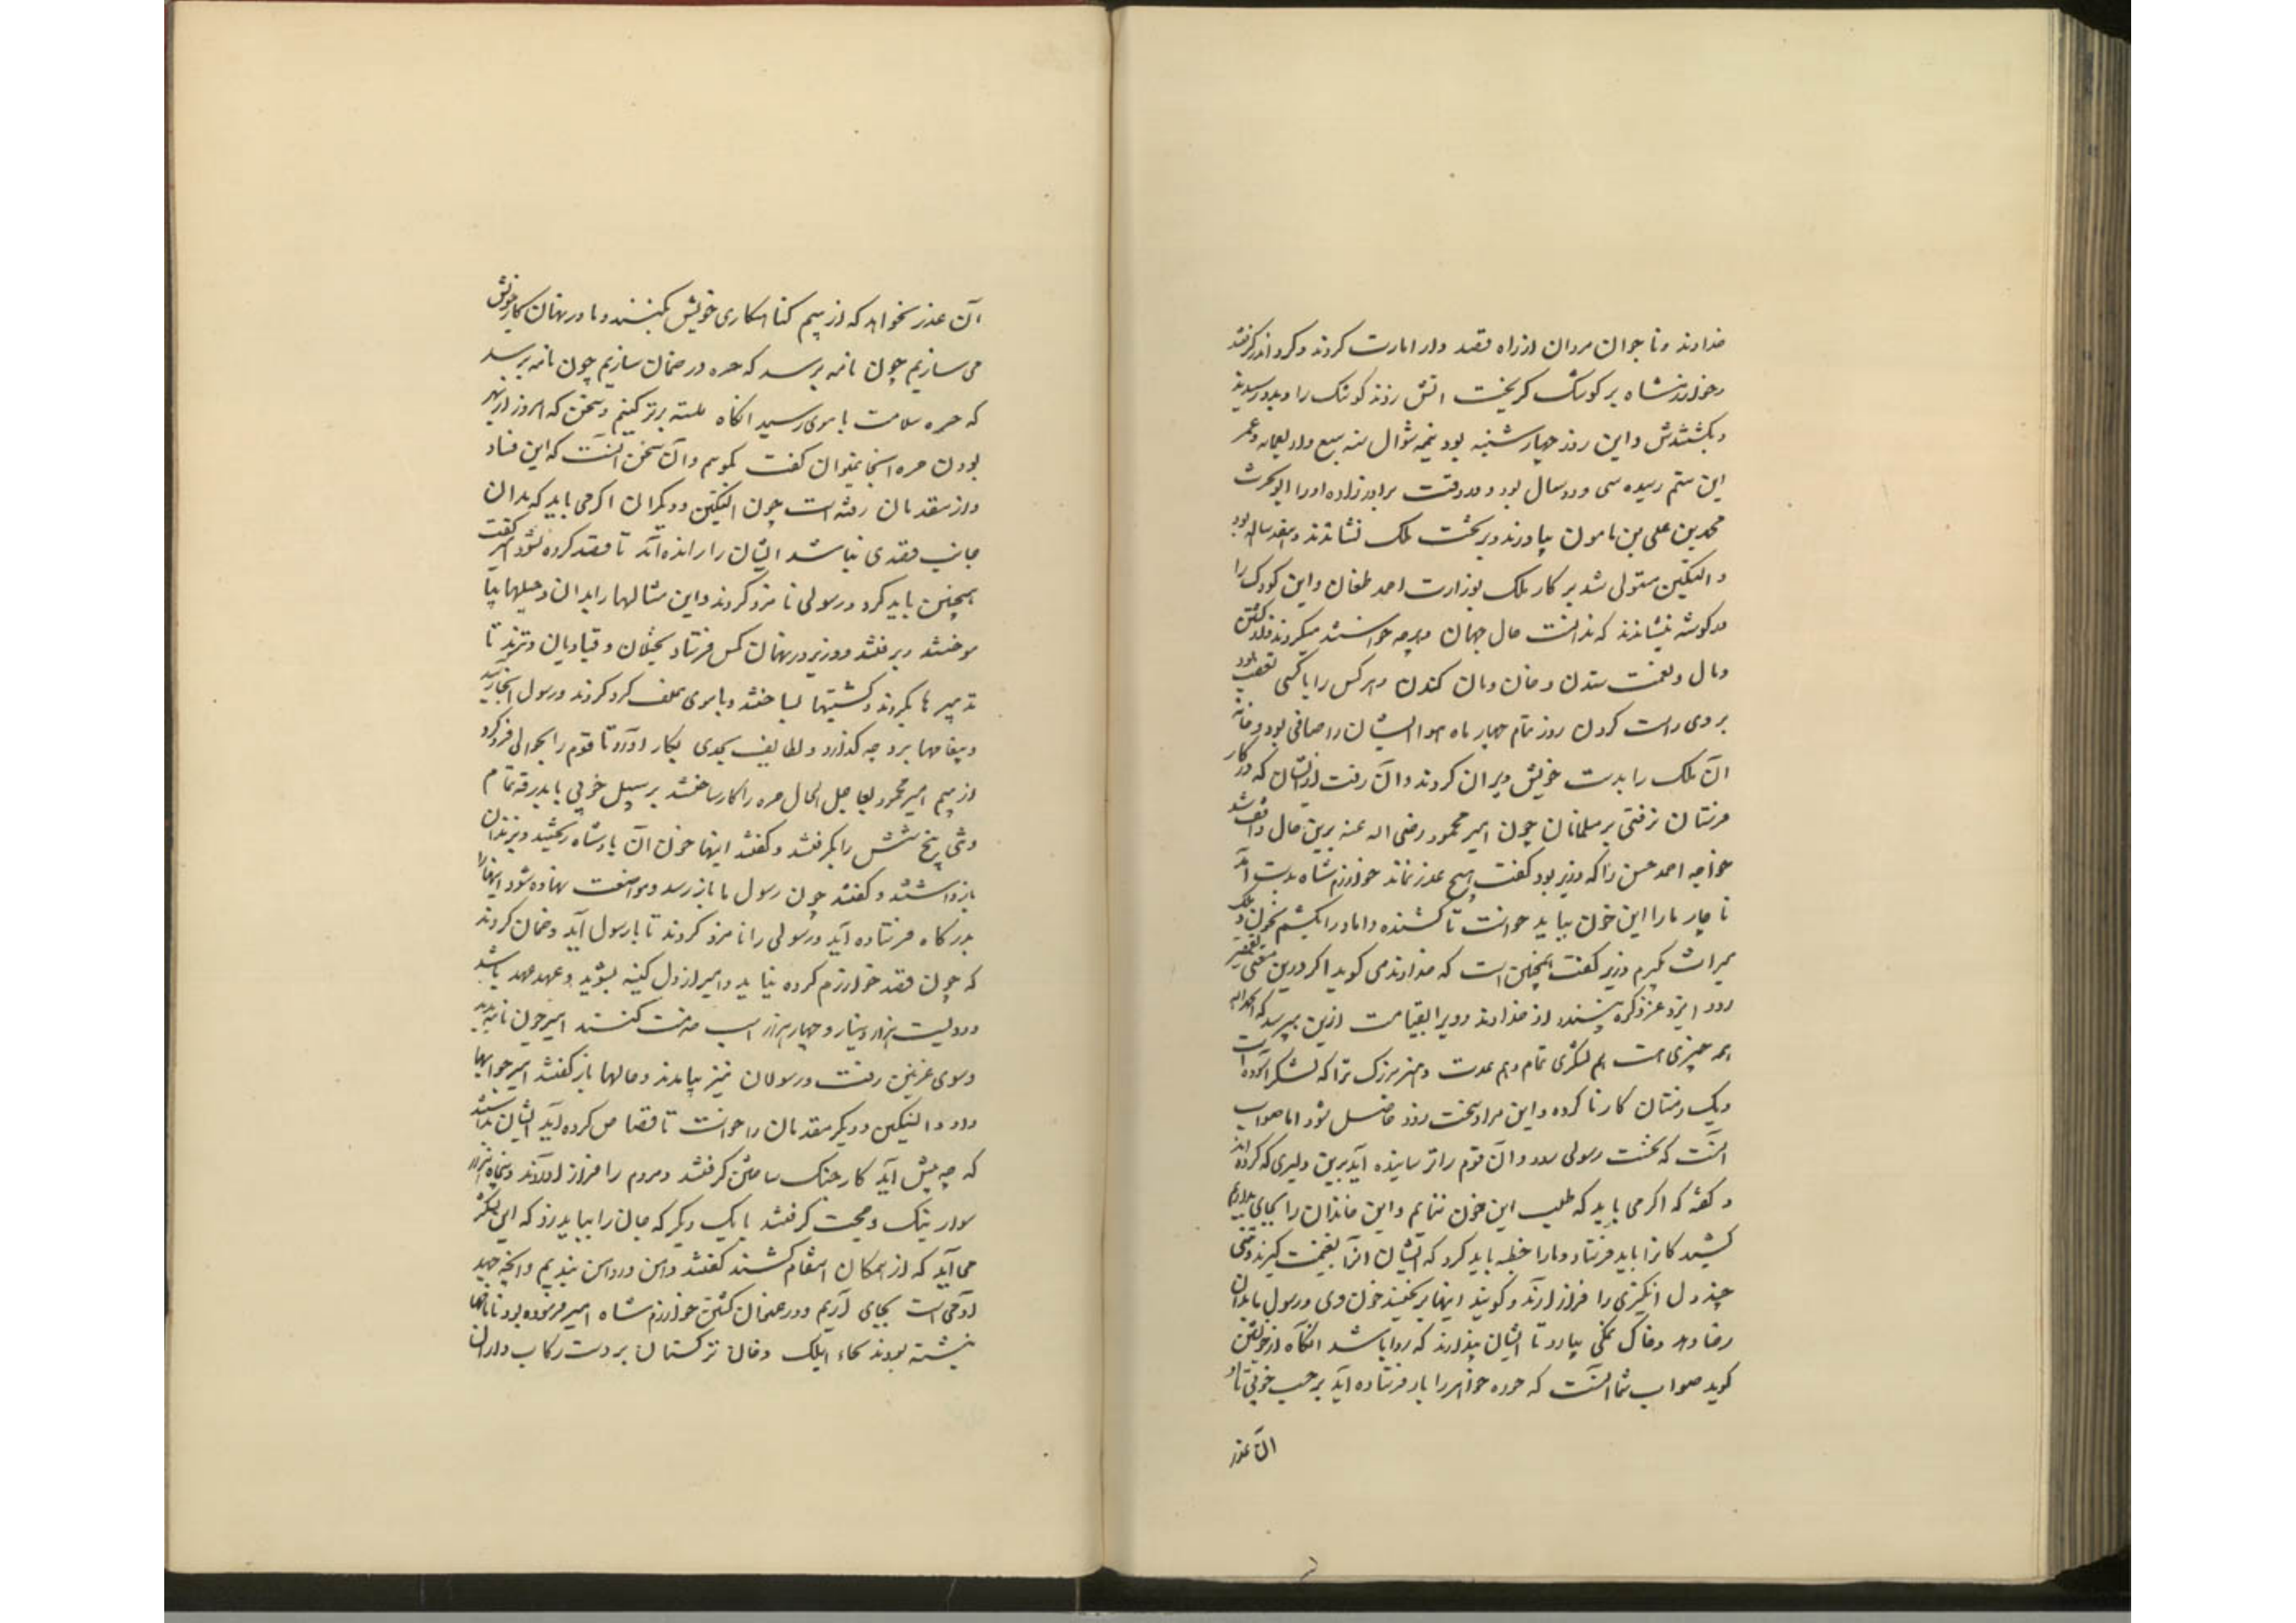 خداوند و ناجوان مردان از راه قصد دار امارت کردند و کرد اندر گرفتند
و خوارزمشاه بر کوشک گریخت آتش زدند کوشک را و بدو رسیدند
و بکشتندش و این روز چهارشنبه بود نیمه شوال سنه سبع و اربعمایه و عمر
این ستم رسیده سی و دو سال بود و در وقت برادرزاده او را ابوالحرث
محمد بن علی بن مامون بیاوردند و بر تخت ملک نشاندند و هفده ساله بود
و الپتکین مستولی شد بر کار ملک بوزارت احمد طغان و این کودک را
در گوشه بنشاندند که ندانست حال جهان و هرچه خواستند میکردند از کشتن
و مال و نعمت ستدن و خان و مان کندن و هر کس را با کسی تعصب بود
بر وی راست کردن روز تمام چهار ماه هوا ایشان را صافی بود و خانه
آن ملک را بدست خویش ویران کردند و آن رفت از ایشان که در کار
نرفتی بر مسلمانان چون امیر محمود رضی الله عنه برین حال واقف شد
خواجه احمد حسن را که وزیر بود گفت هیچ عذر نماند خوارزم شاه بدست آمد
ناچار ما را این خون بباید خواست تا کشنده داماد را بکشیم بخون و ملک
میراث بگیرم وزیر گفت همچنین است که خداوند می گوید اگر درین معنی تقصیر
رود ایزد عز ذکره نپسندد از خداوند و ویرا بقیامت ازین بپرسد که الحمد لله
همه چیزی هست هم لشکری تمام و هم عدت و هنر بزرگ ترا که لشکر آسوده است
و یک زمستان کار نا کرده و این مراد سخت زود حاصل شود اما صواب
آنست که نخست رسولی رود و آن قوم را ترسانیده آید برین دلیری که کرده اند
و گفته که اگر می باید که طلب این خون ننمایم و این خاندان را بجای بداریم
کشندگانرا باید فرستاد و ما را خطبه باید کرد که ایشان آنرا بغنیمت گیرند و تنی
چند دل انگیزی را فراز آرند و گویند اینها بریختند خون وی و رسول ما بدان
رضا دهد و خاک نمکی بیارد تا ایشان پندارند که روا باشد آنگاه از خویشتن
گوید صواب شما آنست که حره خواهر را باز فرستاده آید بر حسب خوبی تا او
آن عذر
آن عذر بخواهد که از بیم گناهکاری خویش بکنند و ما در نهان کار خویش
می سازیم چون نامه برسد که حره در ضمان سازیم چون نامه برسد
که حره سلامت بآموی رسید آنگاه پلیته برتر کنیم و سخن که امروز از بهر
بودن حره آنجا نمیتوان گفت بگویم و آن سخن آنست که این فساد
از مقدمان رفته است چون الپتکین و دیگران اگر می باید که بدان
جانب قصدی نباشد ایشان را رانده آید تا قصد کرده نشود امیر گفت
همچنین باید کرد و رسولی نامزد کردند و این مثالها را بدان و حیلها بیا
موختند و برفتند و وزیر در نهان کس فرستاد بختلان و قبادیان و ترمد تا
تدبیرها بکردند و کشتیها بساختند و بآموی علف گرد کردند و رسول آنجا رسید
و پیغامها بر وجه گذارد و لطایف بجدی بکار آورد تا قوم را بجوال فرو کرد
از بیم امیر محمود بعاجل الحال حره را کار ساختند بر سبیل خوبی با بدرقه تمام
و تنی پنج شش را بگرفتند و گفتند اینها خون آن پادشاه ریختند و بزندان
بازداشتند و گفتند چون رسول ما باز رسد و مواضعت نهاده شود اینها را
بدرگاه فرستاده آید و رسولی را نامزد کردند تا با رسول آید و ضمان کردند
که چون قصد خوارزم کرده نیاید و امیر از دل کینه بشوید و عهد عهد باشد
و دویست هزار دینار و چهار هزار اسب خدمت کنند امیر چون نامه بدید
و سوی غزنین رفت و رسولان نیز بیامدند و حالها باز گفتند امیر جوابها
داد و الپتکین و دیگر مقدمان را خواست تا قصاص کرده آید ایشان بدانستند
که چه پیش آید کار جنگ ساختن گرفتند و مردم را فراز آوردند و پنجاه هزار
سوار نیک و حجت گرفتند با یک دیگر که جان را بباید زد که این لشکر
می آید که از همگان انتقام کشند گفتند دامن در دامن بندیم و آنچه جهد
آدمی است بجای آریم و در عنفوان کشتن خوارزم شاه امیر فرموده بود تا نامها
نبشته بودند بجانب ایلک و خان ترکستان بر دست رکاب داران